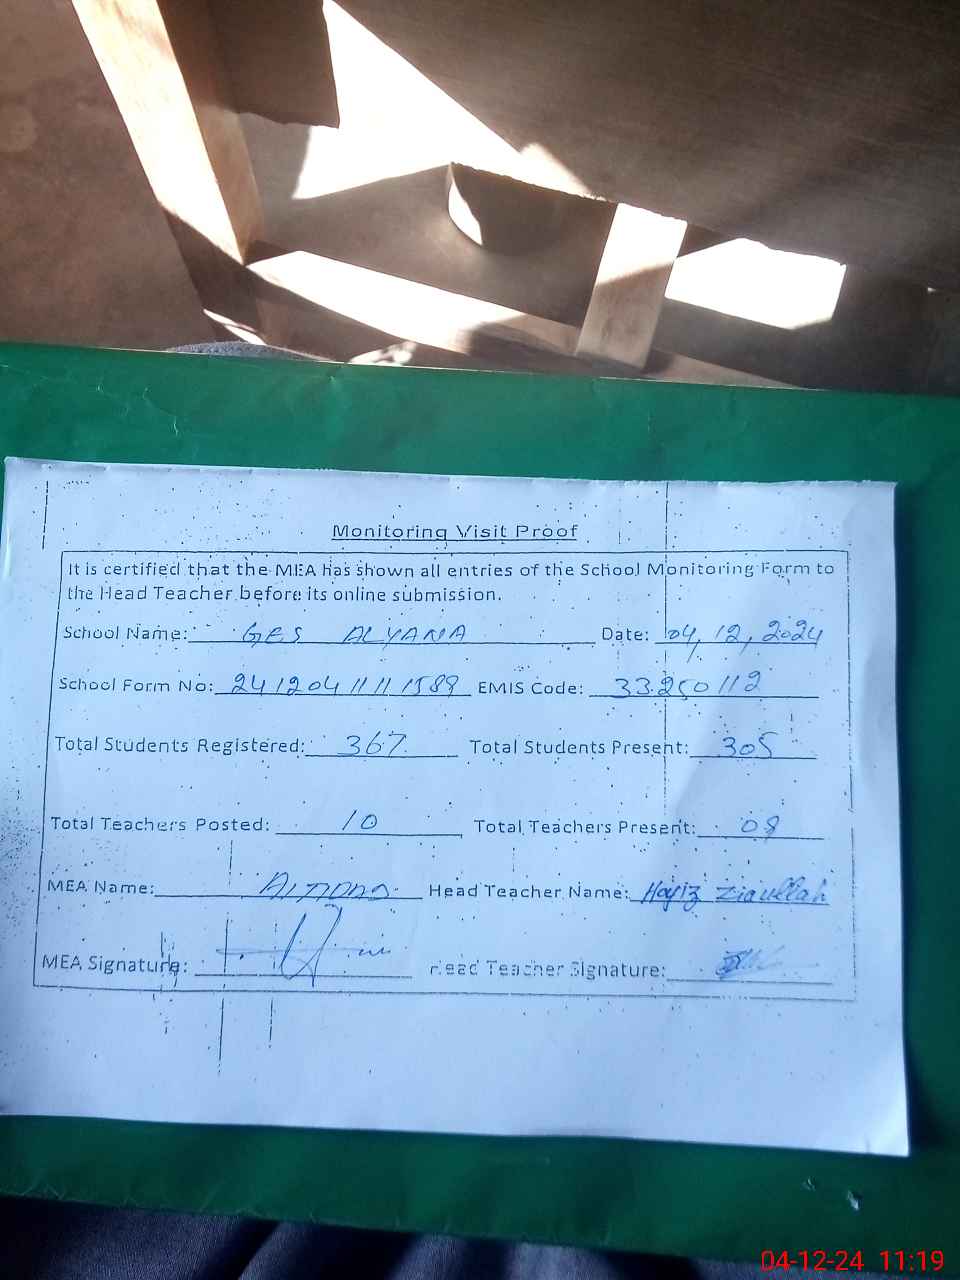 Monitoring Visit Proof
It is certified that the MEA has shown all entries of the School Monitoring Form to
the Head Teacher before its online submission.
School Name: GES ALYANA Date: 04, 12, 2024
School Form No: 24120411111589 EMIS Code: 33250112
Total Students Registered: 367 Total Students Present: 305
Total Teachers Posted: 10 Total Teachers Present: 08
MEA Name: Head Teacher Name: Hafiz Ziaullah
MEA Signature: Head Teacher Signature:
04-12-24 11:19